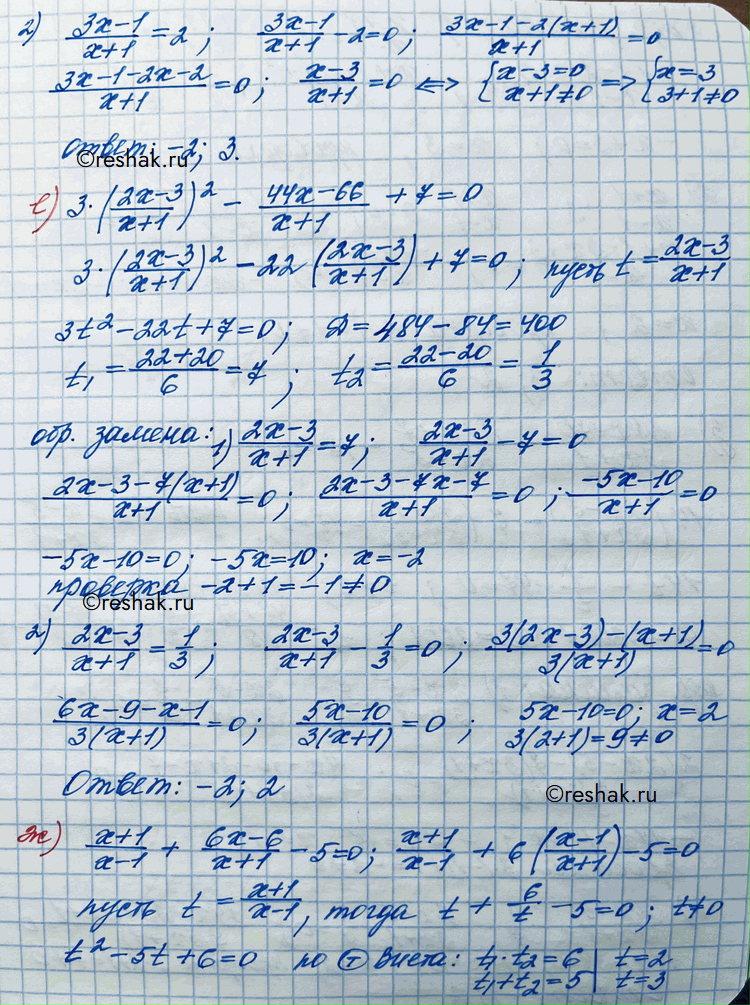 2) (3x-1)/(x+1) = 2 ; (3x-1)/(x+1) - 2 = 0 ; (3x-1-2(x+1))/(x+1) = 0
(3x-1-2x-2)/(x+1) = 0 ; (x-3)/(x+1) = 0 <=> { x-3=0 x+1≠0 => { x=3 3+1≠0
ответ: -2; 3.
©reshak.ru
е) 3·((2x-3)/(x+1))² - (44x-66)/(x+1) + 7 = 0
3·((2x-3)/(x+1))² - 22((2x-3)/(x+1)) + 7 = 0 ; пусть t = (2x-3)/(x+1)
3t² - 22t + 7 = 0 ; D = 484 - 84 = 400
t₁ = (22+20)/6 = 7 ; t₂ = (22-20)/6 = 1/3
обр. замена: 1) (2x-3)/(x+1) = 7 ; (2x-3)/(x+1) - 7 = 0
(2x-3-7(x+1))/(x+1) = 0 ; (2x-3-7x-7)/(x+1) = 0 ; (-5x-10)/(x+1) = 0
-5x-10=0 ; -5x=10 ; x=-2
проверка -2+1=-1≠0
©reshak.ru
2) (2x-3)/(x+1) = 1/3 ; (2x-3)/(x+1) - 1/3 = 0 ; (3(2x-3)-(x+1))/(3(x+1)) = 0
(6x-9-x-1)/(3(x+1)) = 0 ; (5x-10)/(3(x+1)) = 0 ; 5x-10=0 ; x=2
3(2+1)=9≠0
Ответ: -2; 2
©reshak.ru
ж) (x+1)/(x-1) + (6x-6)/(x+1) - 5 = 0 ; (x+1)/(x-1) + 6((x-1)/(x+1)) - 5 = 0
пусть t = (x+1)/(x-1), тогда t + 6/t - 5 = 0 ; t≠0
t² - 5t + 6 = 0 по Т Виета: t₁·t₂=6 | t=2
t₁+t₂=5 | t=3